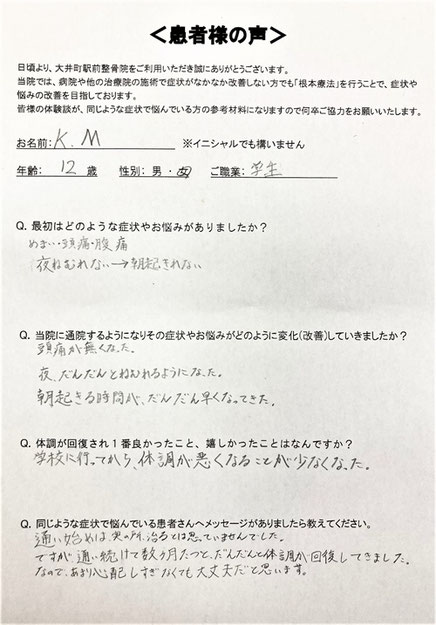 ＜患者様の声＞
日頃より、大井町駅前整骨院をご利用いただき誠にありがとうございます。
当院では、病院や他の治療院の施術で症状がなかなか改善しない方でも「根本療法」を行うことで、症状や
悩みの改善を目指しております。
皆様の体験談が、同じような症状で悩んでいる方の参考材料になりますので何卒ご協力をお願いいたします。
お名前：K.M ※イニシャルでも構いません
年齢： 12 歳 性別：男・女 ご職業：学生
Q. 最初はどのような症状やお悩みがありましたか？
めまい・頭痛・腹痛
夜ねむれない→朝起きれない
Q. 当院に通院するようになりその症状やお悩みがどのように変化(改善)していきましたか？
頭痛が無くなった。
夜、だんだんとねむれるようになった。
朝起きる時間が、だんだん早くなってきた。
Q. 体調が回復され１番良かったこと、嬉しかったことはなんですか？
学校に行ってから、体調が悪くなることが少なくなった。
Q. 同じような症状で悩んでいる患者さんへメッセージがありましたら教えてください。
通い始めは、実の所、治るとは思っていませんでした。
ですが、通い続けて数ヶ月たつと、だんだんと体調が回復してきました。
なので、あまり心配しすぎなくても大丈夫だと思います。